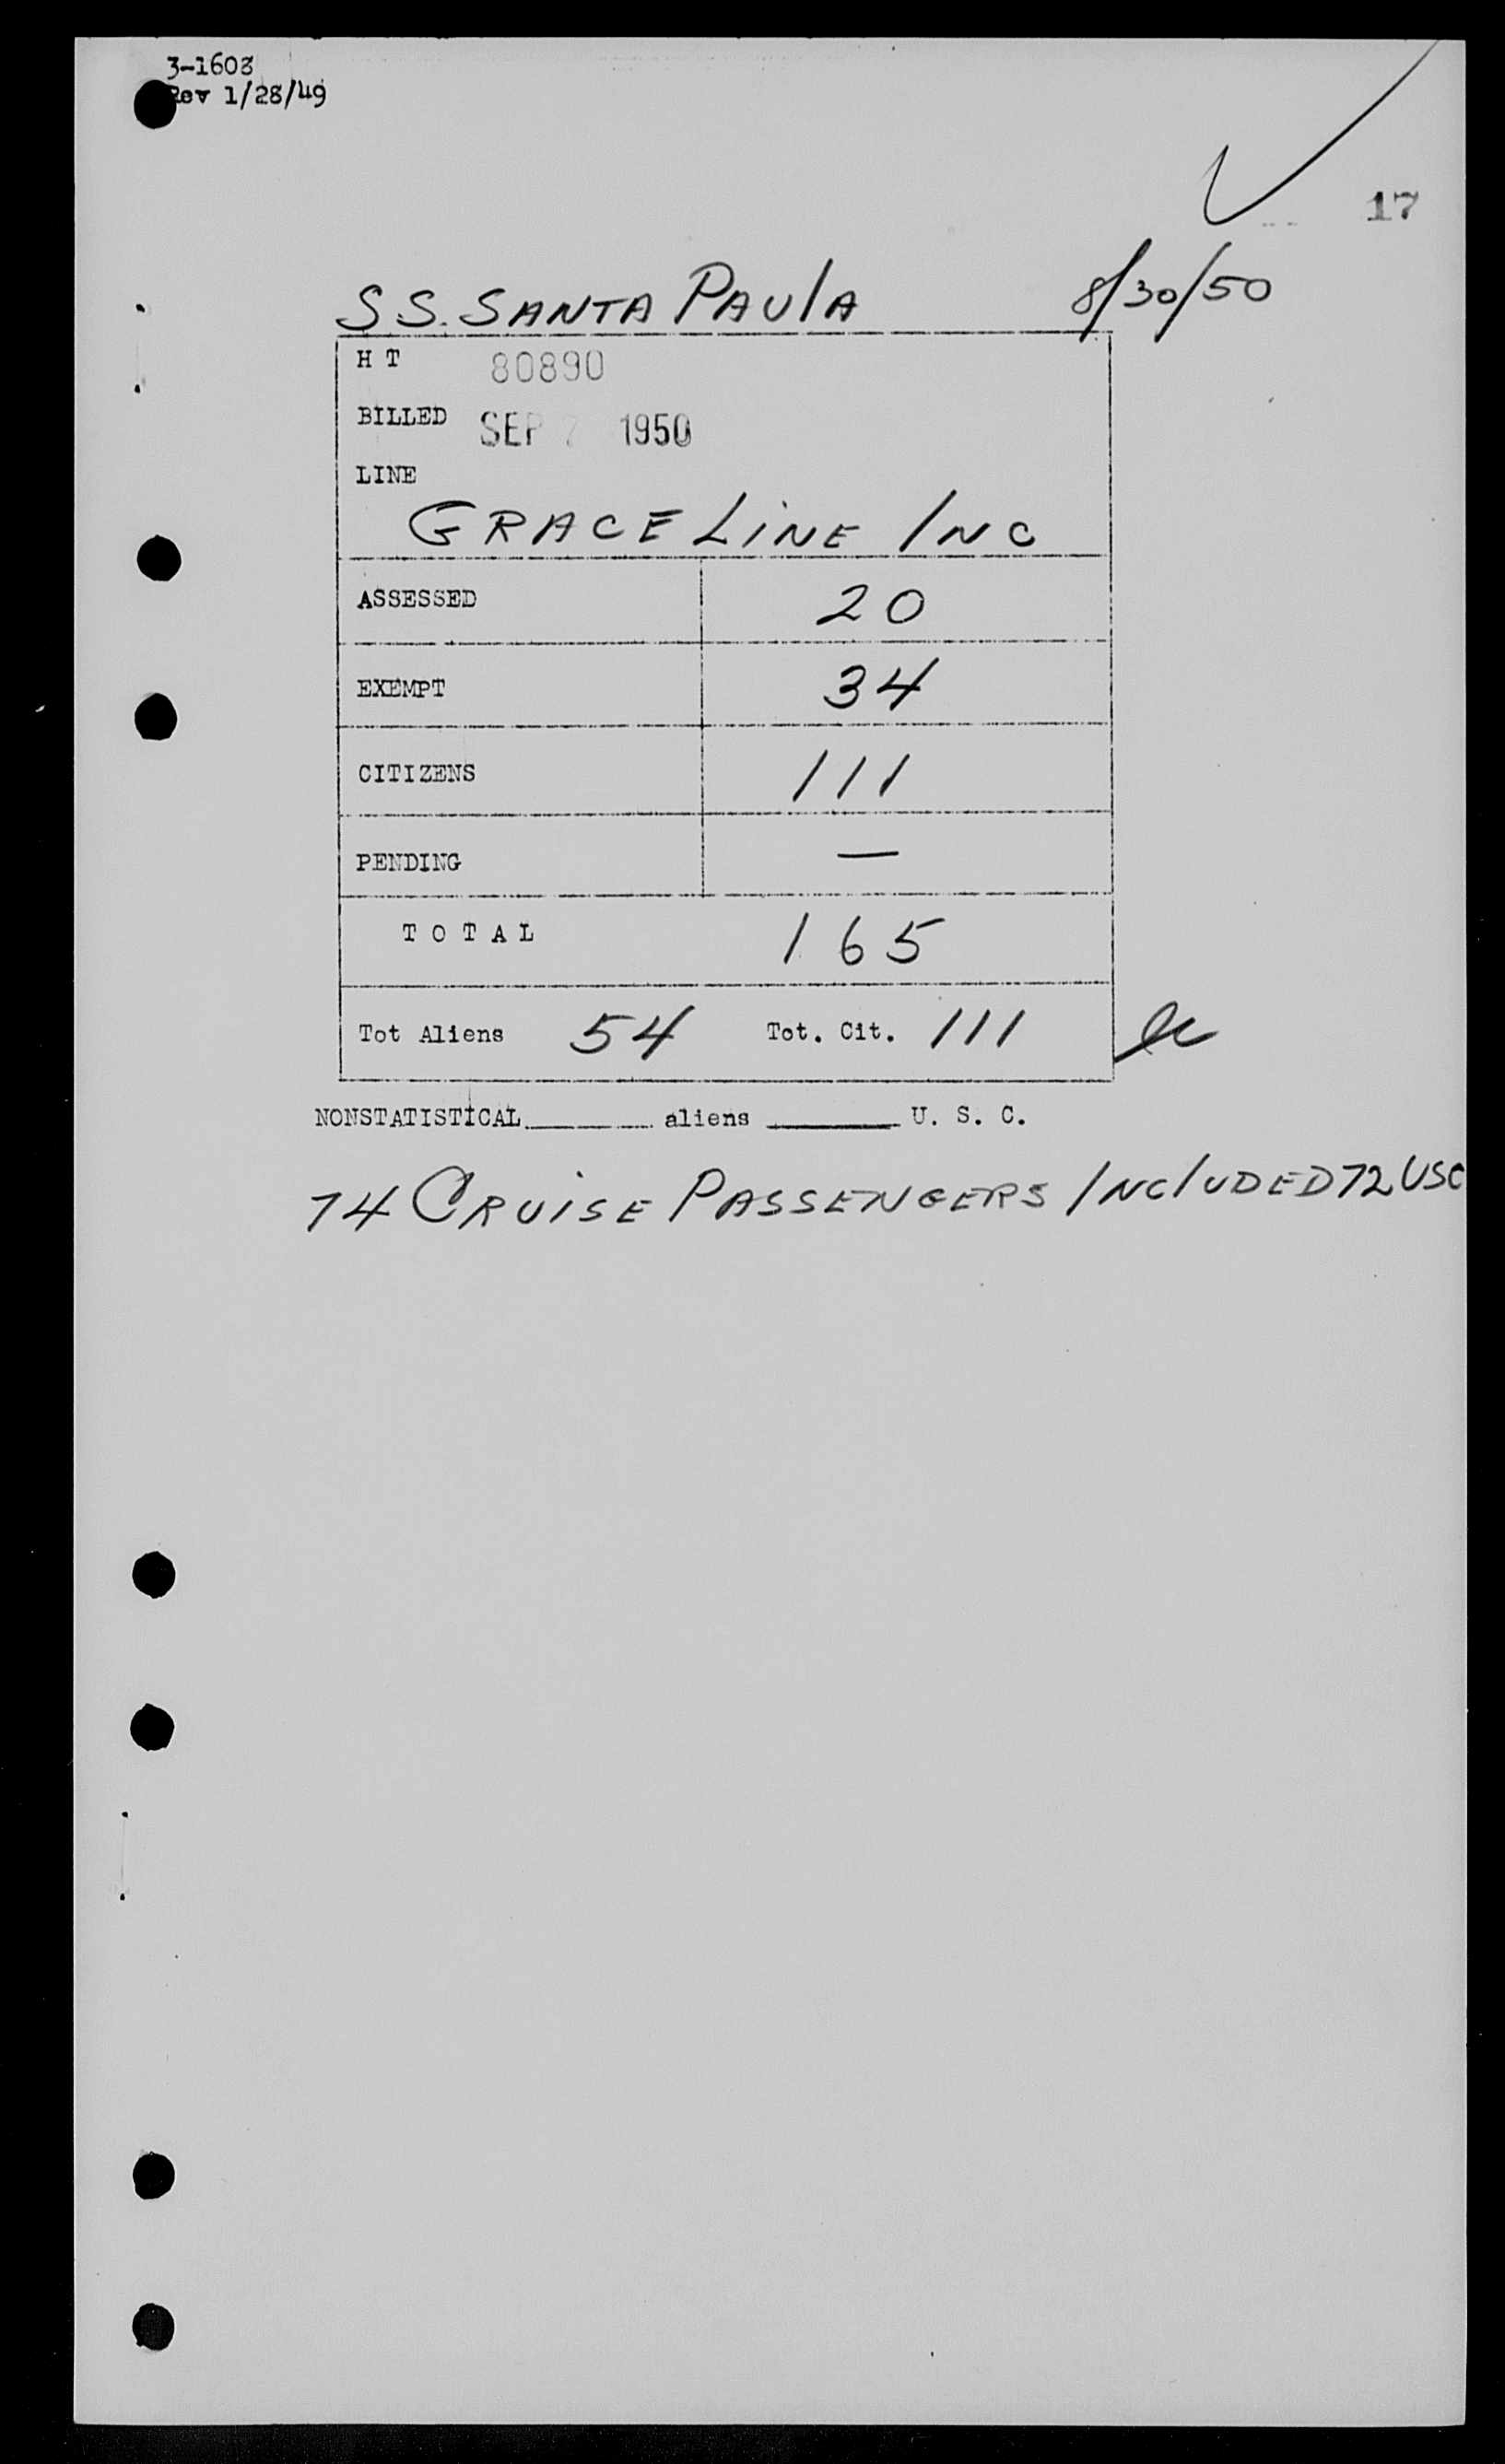 3-1608
Rev 1/28/49
17
S.S. SANTA PAULA 8/30/50
H T 80890
BILLED SEP 7 1950
LINE
GRACE LINE INC
ASSESSED 20
EXEMPT 34
CITIZENS 111
PENDING —
T O T A L 165
Tot Aliens 54 Tot. Cit. 111
NONSTATISTICAL aliens U. S. C.
74 CRUISE PASSENGERS INCLUDED 72 USC